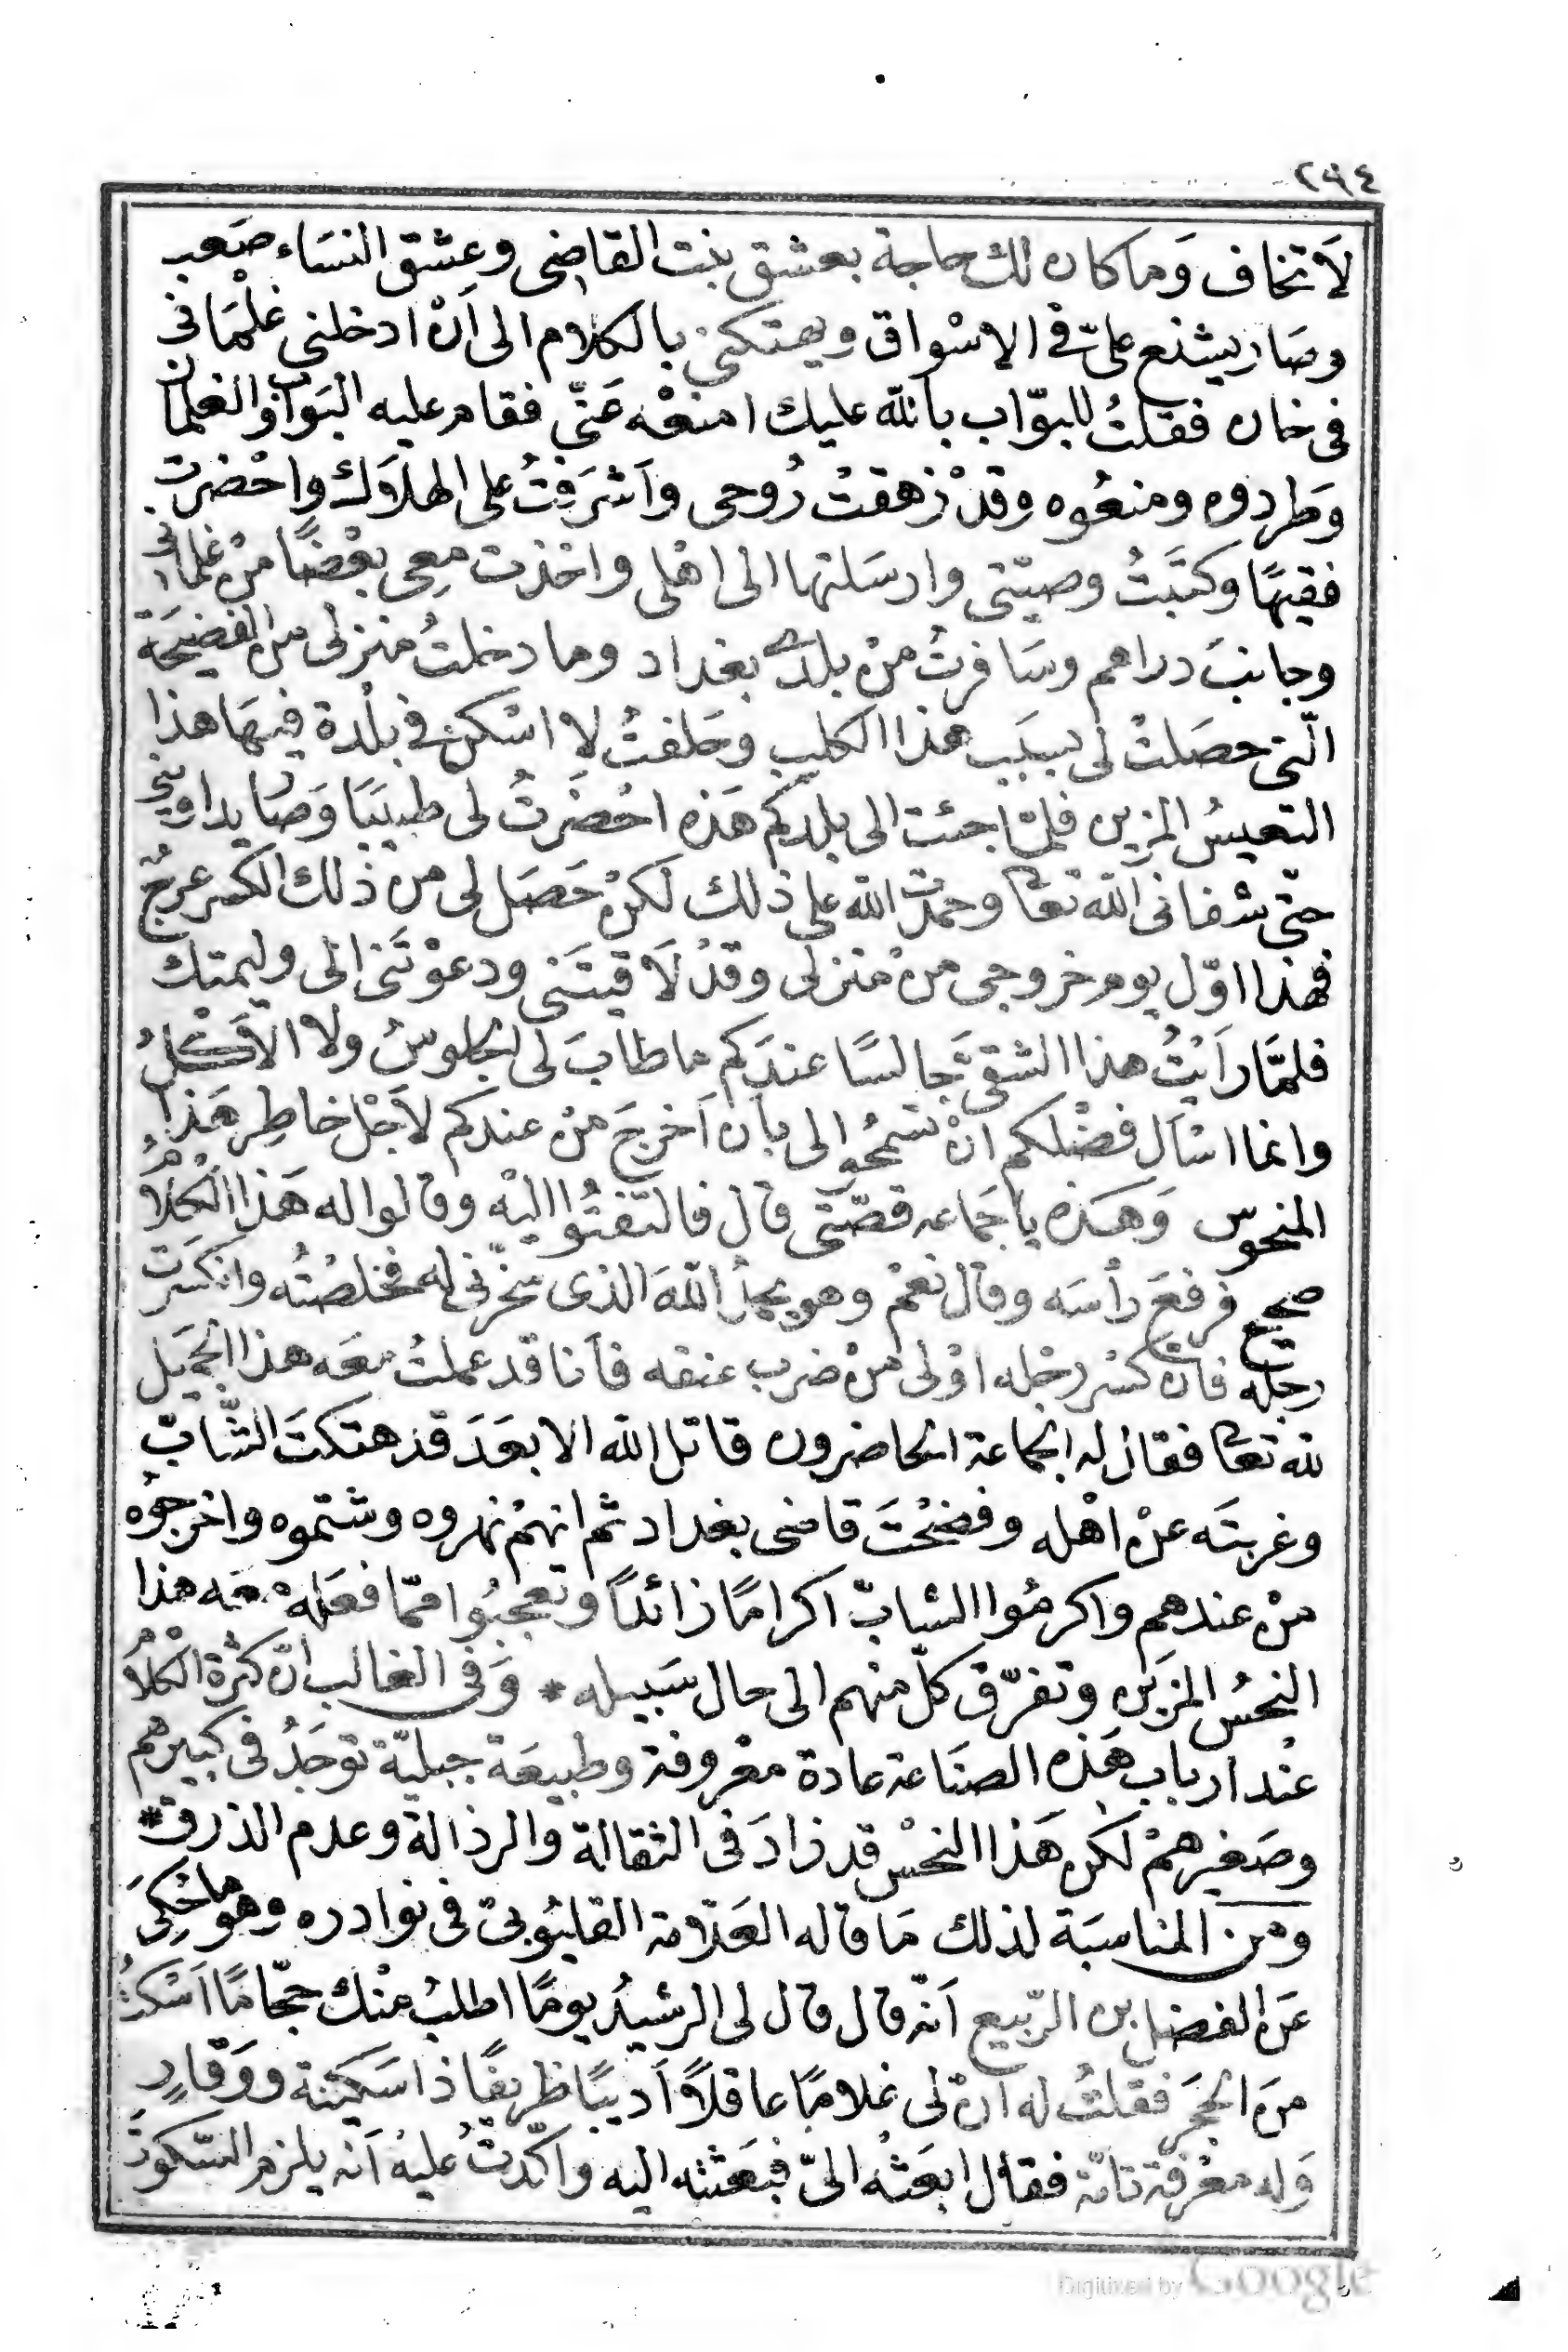 ٢٩٤
لَا تخاف وَما كان لك حاجة بعشق بنت القاضِى وعِشق النسَاء صَعب
وصَار يشنع علىّ فى الاسْواق ويهتكنى بالكلام الى اَنْ ادخلنى غلْمَانى
فى خان فقلتُ للبوّاب بالله عليك امنعْه عَنّى فقام عليه البَواب والغلمان
وَطردوه ومنعُوه وقدْ زهقتْ رُوحى واَشرَفتُ على الهلَاك واحْضرت
فقيهًا وكتَبتُ وصيّتى وارسَلتها الى اهْلى واخذت معِى بعْضًا منْ غلمانى
وجانبَ دراهم وسَافرتُ منْ بلدى بغداد وما دخلتُ منزلى من الفضيحَة
الّتى حصَلتْ لى بسبَب هذا الكلب وحَلفتُ لا اسْكن فى بلْدة فيهَا هذا
التعيسُ المزين فلمّا جئت الى بلدكم هَذه احْضَرتُ لى طبيبًا وَصَار يداوينى
حتّى شفانى اَلله تعا وحمدْت الله على ذلك لكنْ حَصَل لى من ذلك الكسر عرجٌ
فهذا اوّل يوم خروجى منْ منزلى وقدْ لَاقيتَنى ودعوْتَنى الى وليمتك
فلمّا راَيْتُ هذا الشقىّ جَالسًا عندَكم ما طابَ لى الجلوسُ ولا الَاكْلُ
وانما اسْاَل فضْلكم انْ تسْمحُوا لى بان اَخرجَ منْ عندكم لاَجْل خاطِر هَذا
المنحوس وَهَذه ياجَماعه قصّتى قال فالتفتُوا اليْه وقالوا له هَذا الكلامُ
صحيح فرفعَ راْسَه وقال نعَمْ وهو يحمدُ اللهَ الذى سَخّرنى له فخلصْتُه وانكسَرت
رجله فان كسْر رجْله اوْلى منْ ضرب عنقه فاَنا قد عملتُ معَه هذا الجَميل
لله تعا فقال له الجماعة الحاضرون قاتل الله الابعَدَ قدْ هتكتَ الشّابّ
وغربتَه عنْ اهْله وفضحْتَ قاضى بغداد ثم انهمْ نهروه وشتموه واخرجُوه
منْ عندهم واكرمُوا الشابّ اكرامًا زائداً وتعجبُوا ممّا فعَله معَه هذا
النحْسُ المزين وتفرّق كلّ منهم الى حال سَبيله * وَفى الغالب انّ كثرة الكلام
عنْد ارباب هَذه الصنَاعة عادة معْروفة وطبيعَة جبليّة توجَدُ فى كبيرهم
وصَغيرهمْ لكن هَذا النحْس قد زادَ فى الثقالة والرذالة وعدم الذوق *
ومن المناسبَة لذلك مَا قاله العَلّامة القليُوبىّ فى نوادره وهو ما حُكِىَ
عَن الفضل بن الرّبيع اَنّه قال قال لى الرشيدُ يومًا اطلبُ منْك حجّامًا اَسْكتُ
منَ الحجَر فقلتُ له انّ لى غلامًا عاقلاً اَديبًا ظريفًا ذا سَكينة ووَقارٍ
وَله معْرفة تامّة فقال ابعَثْه الىّ فبَعَثته اليه واكّدتُ عليْه اَنه يلزم السّكوتَ
Digitized by Google